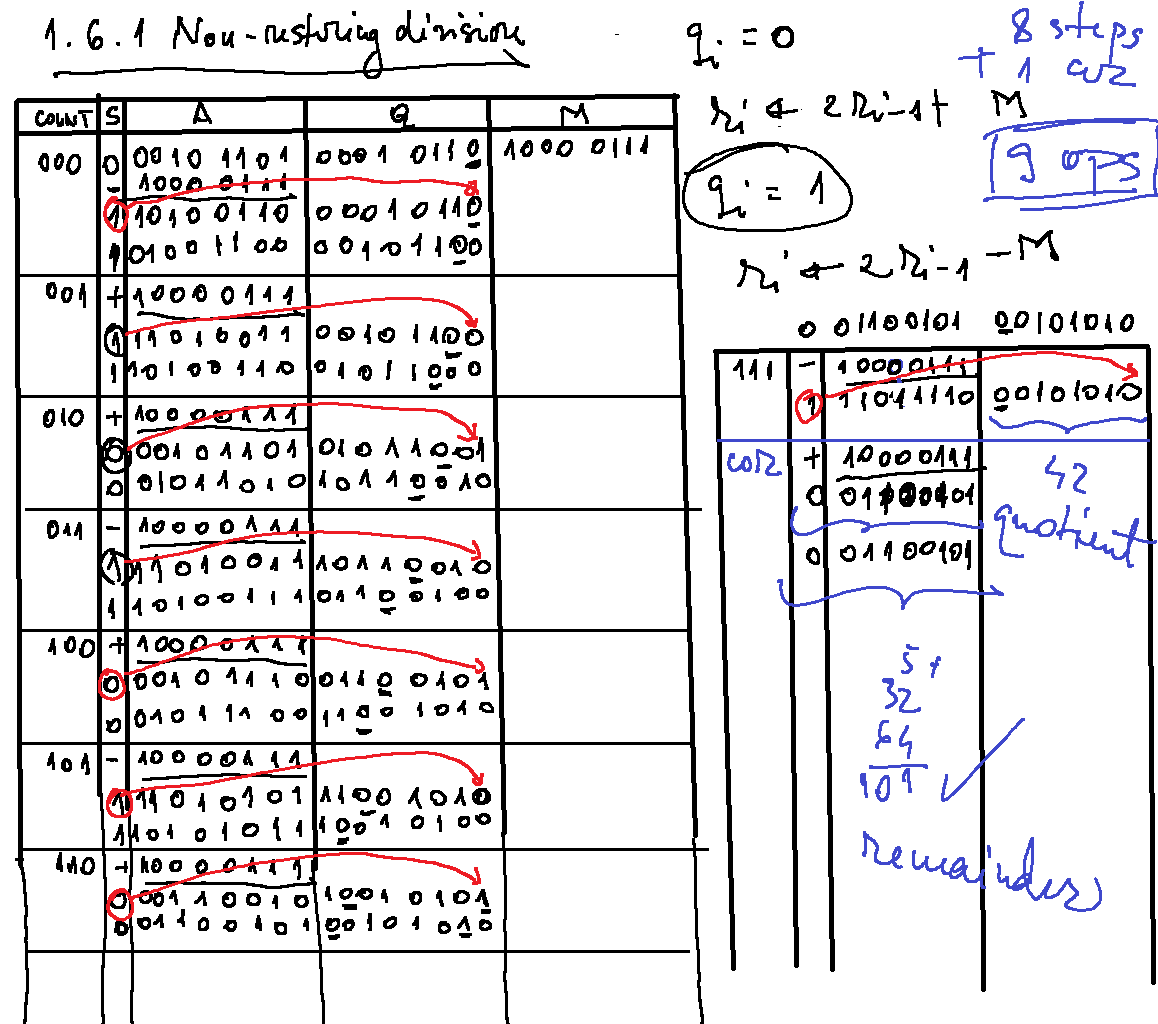 1.6.1 Non-restoring division
COUNT S A Q M
000 0 0010 1101 0001 0110 1000 0111
- 1000 0111
1 10100110 00010110
1 01001100 00101100
001 + 10000111
1 11010011 00101100
1 10100110 01011000
010 + 10000111
0 00101101 01011001
0 01011010 10110010
011 - 10000111
1 11010011 10110010
1 10100111 01100100
100 + 10000111
0 00101110 01100101
0 01011100 11001010
101 - 10000111
1 11010101 11001010
1 10101011 10010100
110 + 10000111
0 00110010 10010101
0 01100101 00101010
qi = 0
ri ← 2ri-1+ M
qi = 1
ri ← 2ri-1 - M
8 steps
+ 1 cor
9 ops
0 01100101 00101010
111 - 10000111
1 11011110 00101010
cor + 10000111
0 01100101
0 01100101
42
quotient
5+
32
64
101
remainder